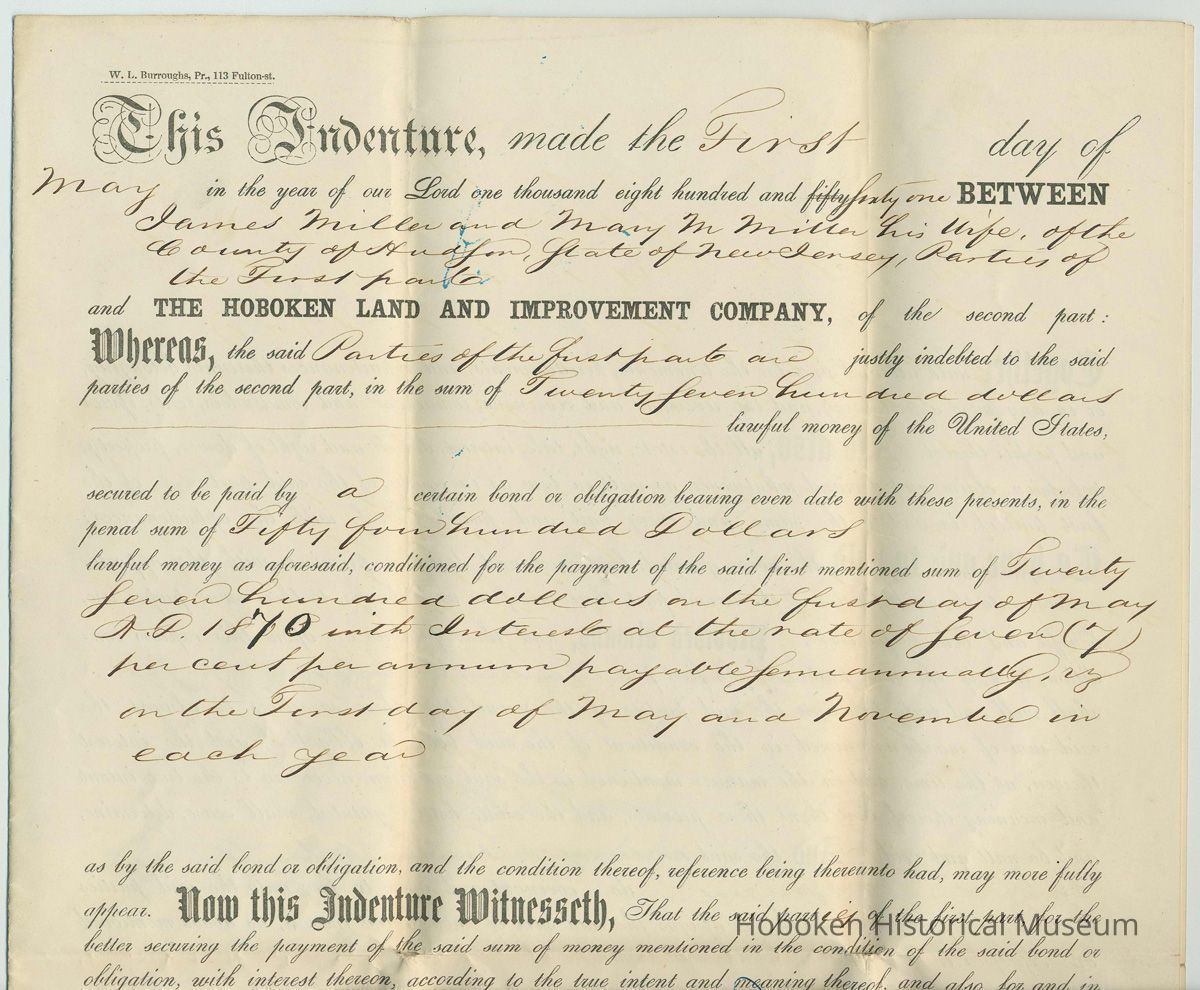 W. L. Burroughs, Pr., 113 Fulton-st.
This Indenture, made the First day of
May in the year of our Lord one thousand eight hundred and fifty sixty one BETWEEN
James Miller and Mary M Miller his Wife, of the
County of Hudson, State of New Jersey, Parties of
the First part
and THE HOBOKEN LAND AND IMPROVEMENT COMPANY, of the second part:
Whereas, the said Parties of the first part are justly indebted to the said
parties of the second part, in the sum of Twenty Seven hundred dollars
lawful money of the United States,
secured to be paid by a certain bond or obligation bearing even date with these presents, in the
penal sum of Fifty four hundred Dollars
lawful money as aforesaid, conditioned for the payment of the said first mentioned sum of Twenty
Seven hundred dollars on the first day of May
A.D. 1870 with Interest at the rate of Seven (7)
per cent per annum payable Semi annually, viz
on the First day of May and November in
each year
as by the said bond or obligation, and the condition thereof, reference being thereunto had, may more fully
appear. Now this Indenture Witnesseth, That the said parties of the first part, for the
Hoboken Historical Museum
better securing the payment of the said sum of money mentioned in the condition of the said bond or
obligation, with interest thereon, according to the true intent and meaning thereof, and also for and in